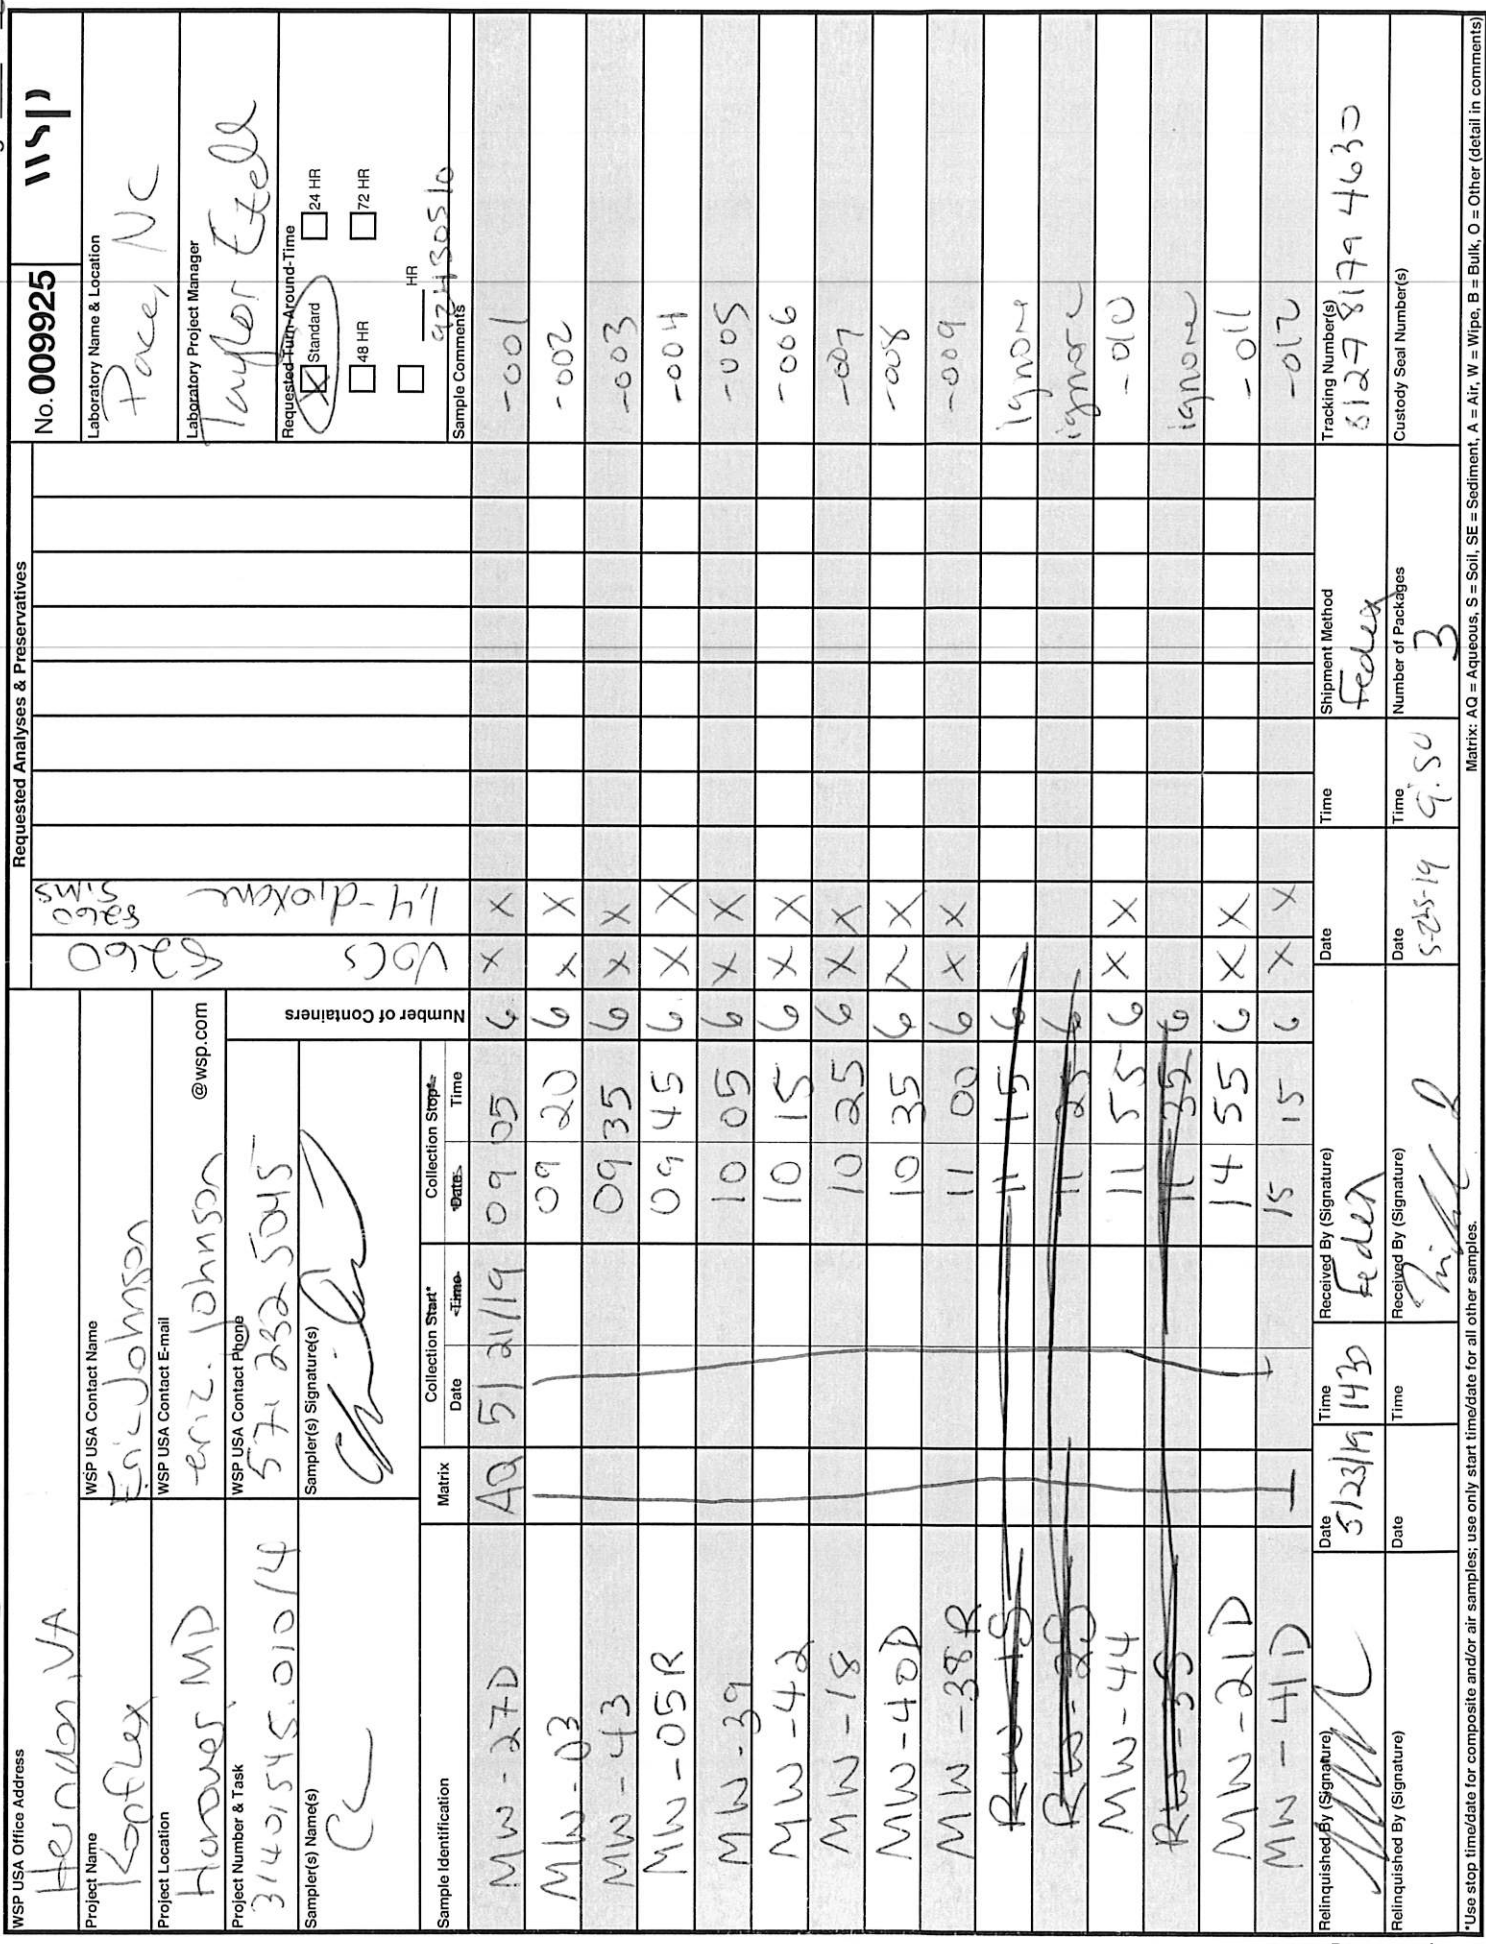 WSP USA Office Address
Herndon, VA
Project Name
Kopflex
Project Location
Hanover, MD
Project Number & Task
31401545.010/4
Sampler(s) Name(s)
WSP USA Contact Name
Eric Johnson
WSP USA Contact E-mail
eric.johnson @wsp.com
WSP USA Contact Phone
571 232 5045
Sampler(s) Signature(s)
Requested Analyses & Preservatives
VOCs 8260
1,4-dioxane 8260 SIMS
No. 009925
wsp
Laboratory Name & Location
Pace, NC
Laboratory Project Manager
Taylor Ezell
Requested Turn-Around-Time
X Standard 24 HR
48 HR 72 HR
HR
92430510
Sample Identification Matrix Collection Start* Date Time Collection Stop* Date Time Number of Containers Sample Comments
MW-27D AQ 5/21/19 09 05 6 X X -001
MW-03 09 20 6 X X -002
MW-43 09 35 6 X X -003
MW-05R 09 45 6 X X -004
MW-39 10 05 6 X X -005
MW-42 10 15 6 X X -006
MW-18 10 25 6 X X -007
MW-40D 10 35 6 X X -008
MW-38R 11 00 6 X X -009
RW-1S 11 15 6 ignore
RW-2S 11 25 6 ignore
MW-44 11 55 6 X X -010
RW-3S 11 35 6 ignore
MW-21D 14 55 6 X X -011
MW-41D 15 15 6 X X -012
Relinquished By (Signature) Date 5/23/19 Time 1430 Received By (Signature) Fedex Date Time Shipment Method Fedex Tracking Number(s) 8127 8179 4630
Relinquished By (Signature) Date Time Received By (Signature) Date 5-25-19 Time 9:50 Number of Packages 3 Custody Seal Number(s)
*Use stop time/date for composite and/or air samples; use only start time/date for all other samples.
Matrix: AQ = Aqueous, S = Soil, SE = Sediment, A = Air, W = Wipe, B = Bulk, O = Other (detail in comments)